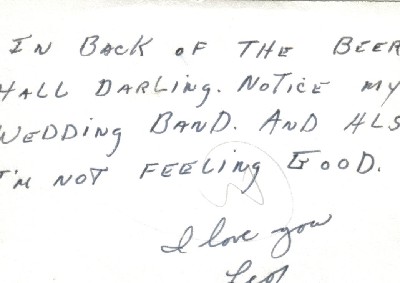 IN BACK OF THE BEER
HALL DARLING. NOTICE MY
WEDDING BAND. AND ALS
I'M NOT FEELING GOOD.
I love you
Leo